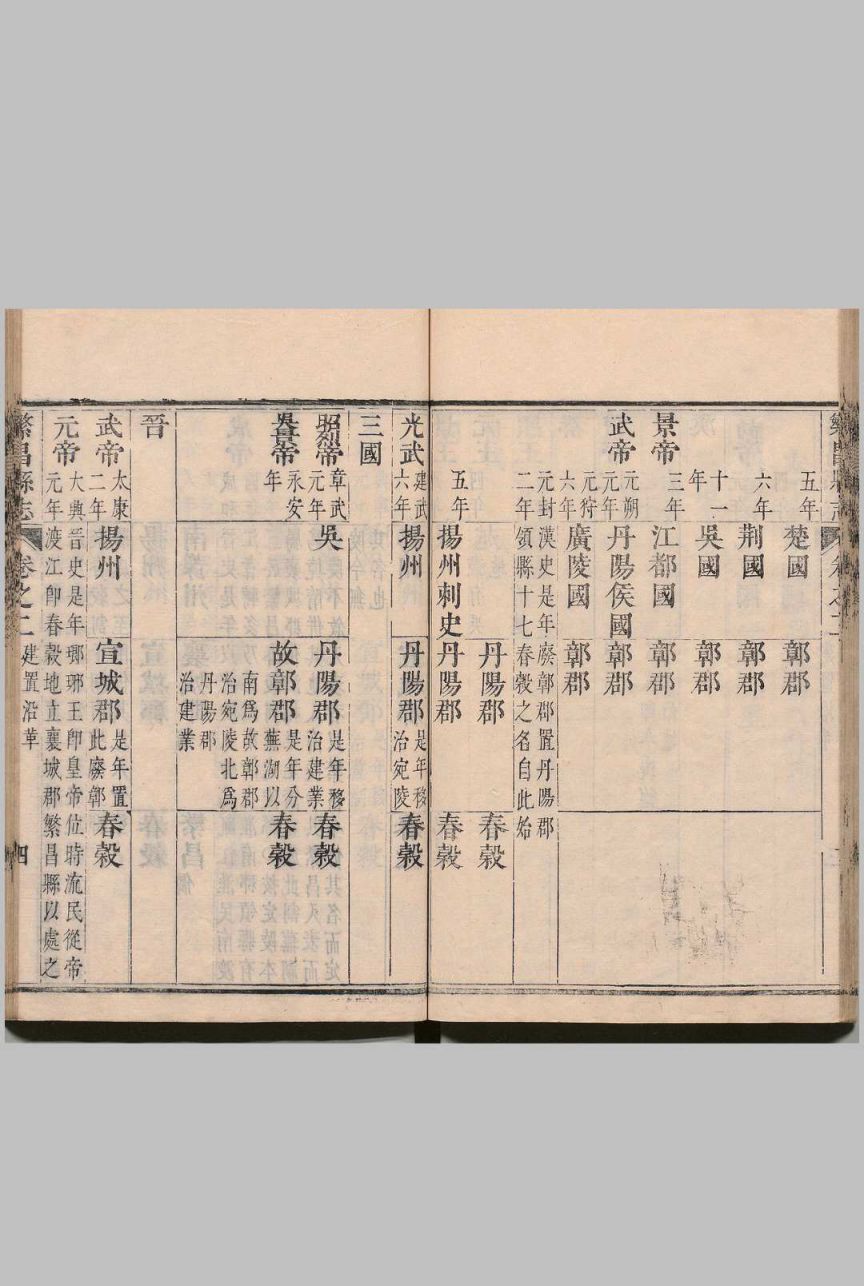 五年 楚國 鄣郡
六年 荆國 鄣郡
十一年 吳國 鄣郡
景帝 三年 江都國 鄣郡
武帝 元朔元年 丹陽侯國 鄣郡
元狩六年 廣陵國 鄣郡
元封二年 漢史是年廢鄣郡置丹陽郡領縣十七春榖之名自此始
丹陽郡 春榖
五年 揚州刺史 丹陽郡 春榖
光武 建武六年 揚州 丹陽郡 是年移治宛陵 春榖
三國
昭烈帝 章武元年 吳 丹陽郡 是年移治建業 春榖
吳景帝 永安年 故鄣郡 是年分蕪湖以南爲故鄣郡治宛陵北爲丹陽郡治建業 春榖
晉
武帝 太康二年 揚州 宣城郡 是年置此廢鄣 春榖
元帝 大興元年 晉史是年瑯琊王卽皇帝位時流民從帝渡江卽春榖地立襄城郡繁昌縣以處之
繁昌縣志 卷之二 建置沿革 四